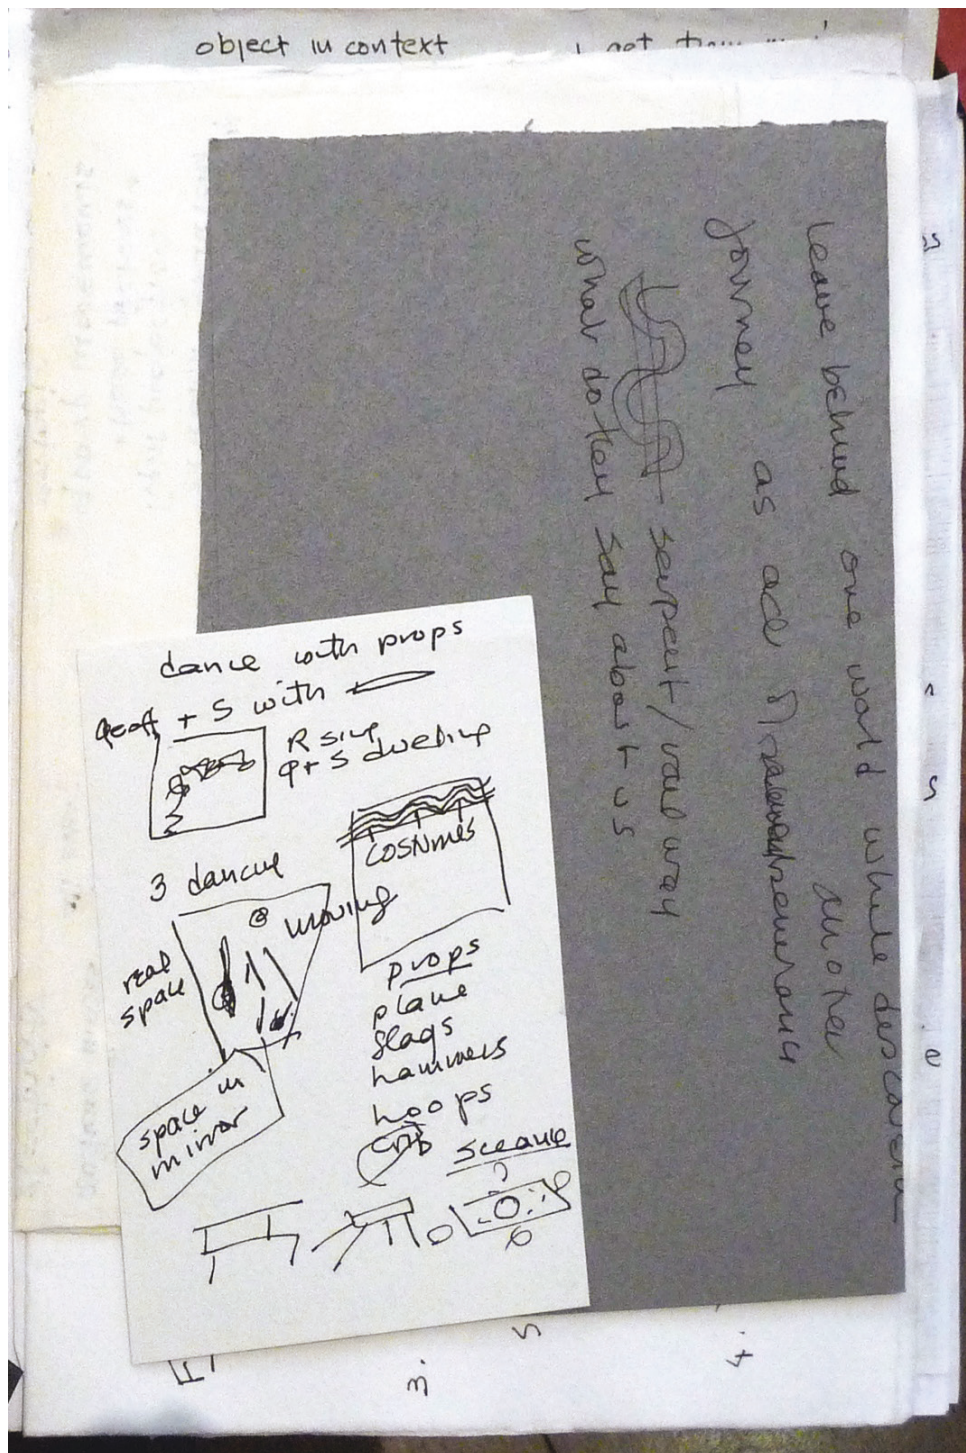 object in context
leave behind one world while
another
journey as act of
serpent/railway
what do they say about us
dance with props
Geoff + S with
R sing
G + S dueling
costumes
3 dancing
moving
real
space
space in
mirror
props
plane
flags
hammers
hoops
crib
sceance
3.
4.